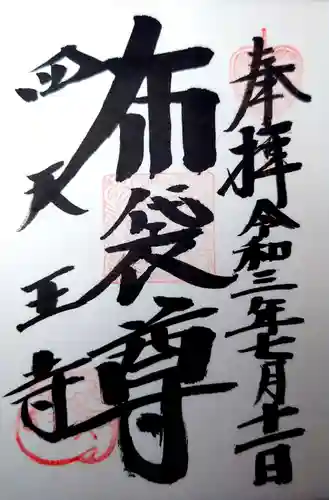 奉拝 令和三年七月十一日
布袋尊
四天王寺